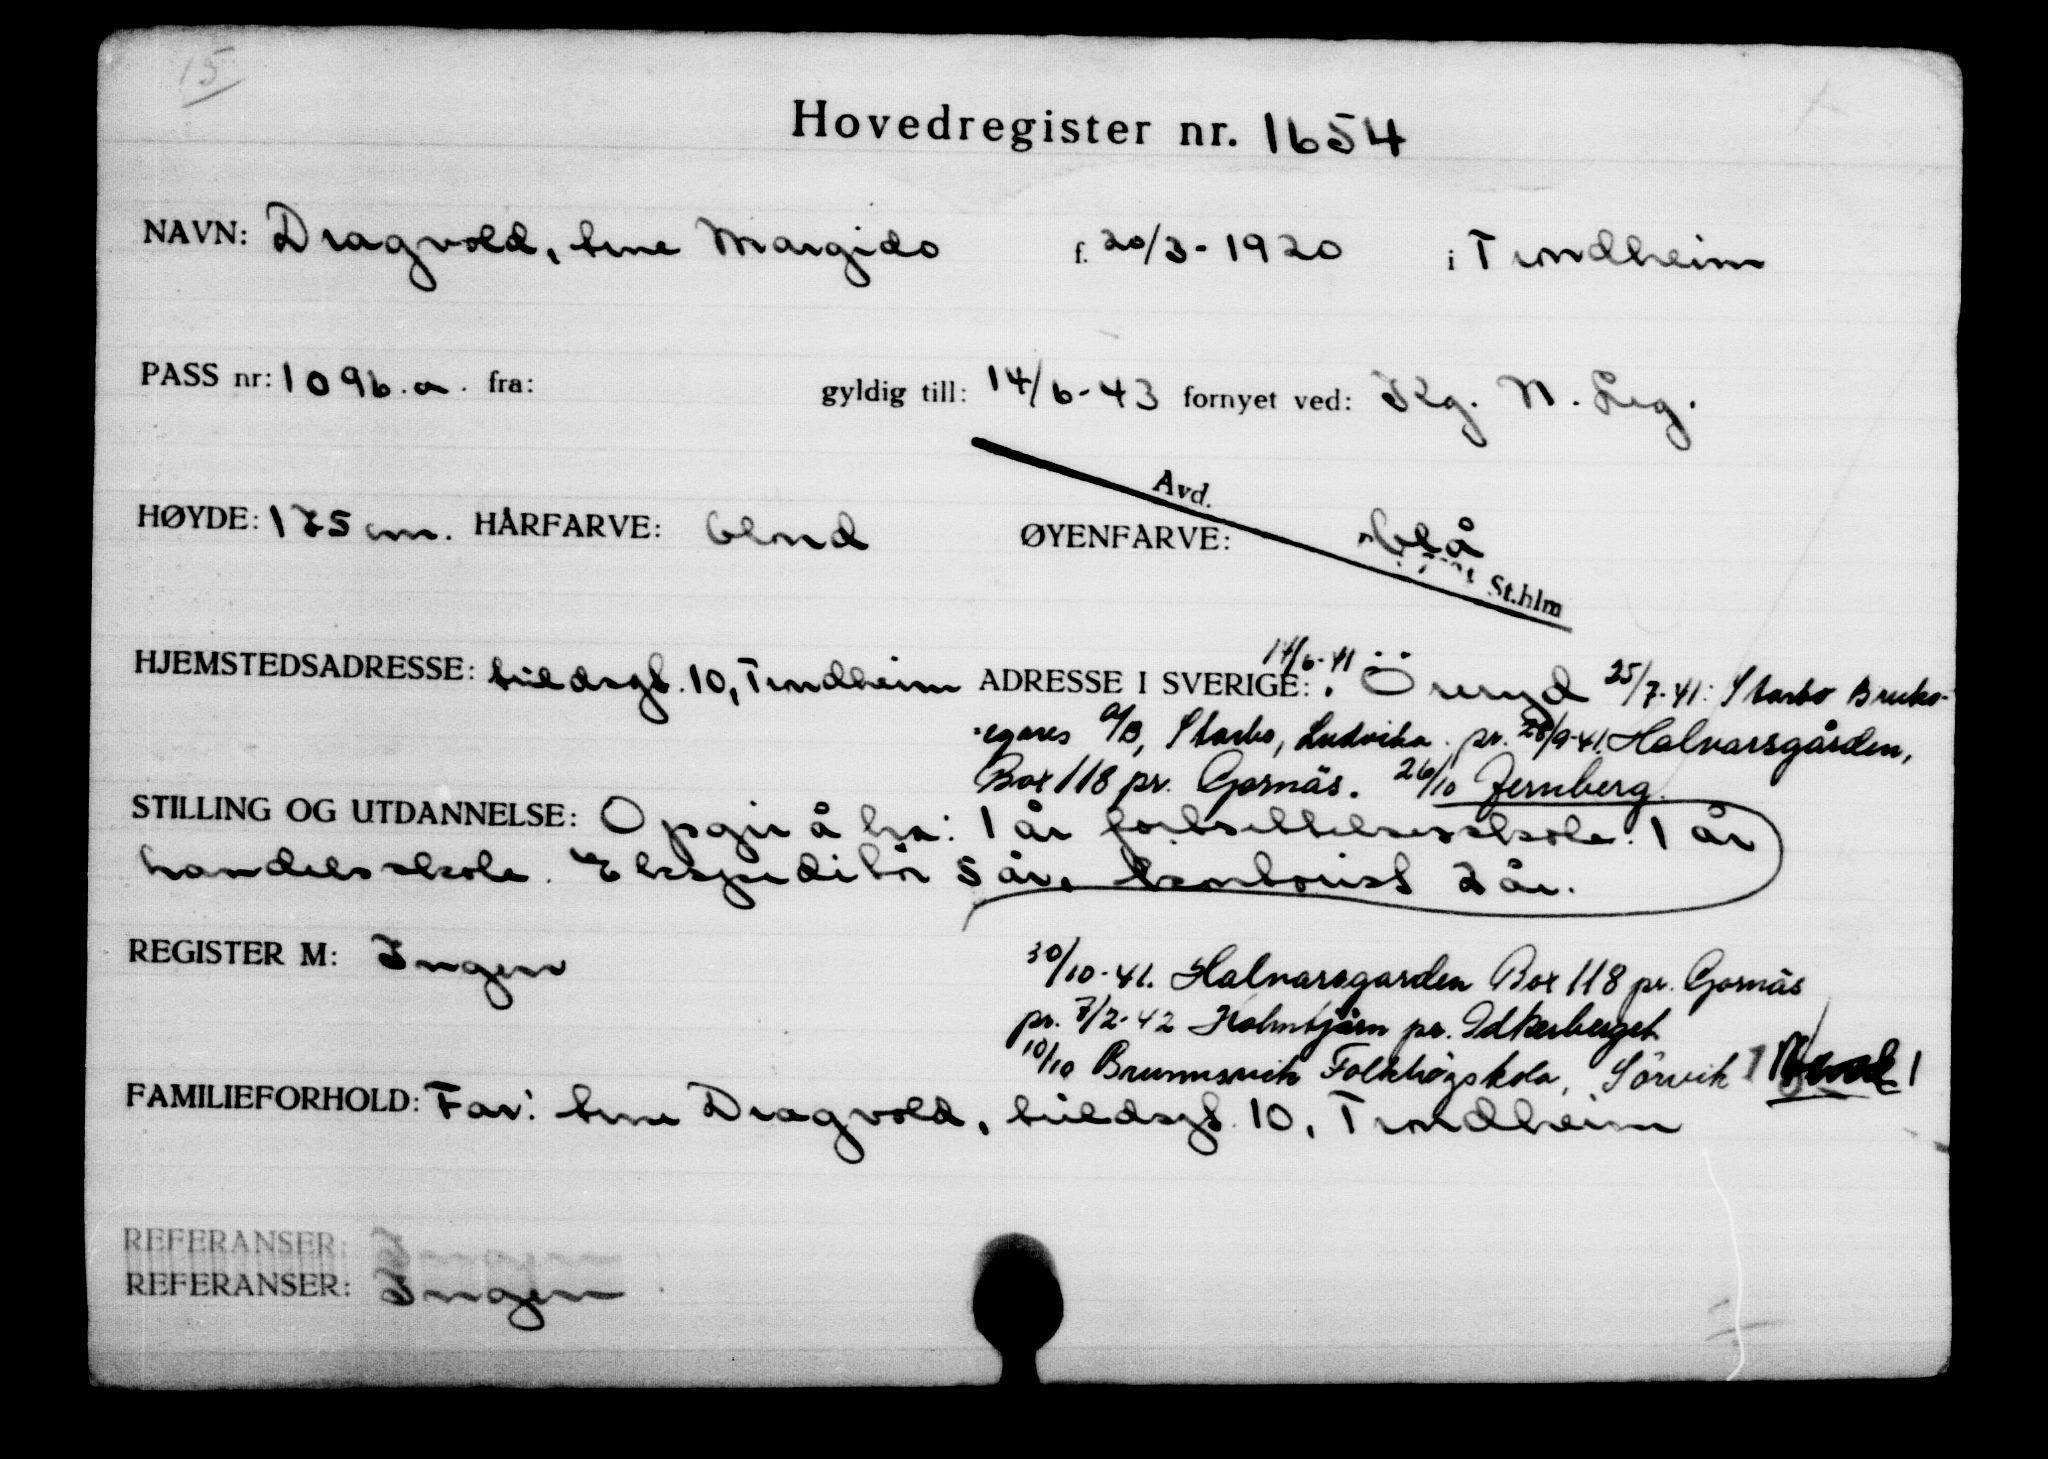 15
Hovedregister nr. 1654
NAVN: Dragvold, Arne Margido f. 20/3-1920 i Trondheim
PASS nr: 1096.a. fra: gyldig till: 14/6-43 fornyet ved: Kg. N. Leg.
Avd.
HØYDE: 175 cm. HÅRFARVE: blond ØYENFARVE: blå
St.hlm
14/6-41
HJEMSTEDSADRESSE: 10, Trondheim ADRESSE I SVERIGE: Öreryd 25/7-41: Starbo Bruks-
egares A/B, Starbo, Ludvika. pr. 28/9-41. Halvarsgården,
Box 118 pr. Gornäs. 26/10 Jernberg.
STILLING OG UTDANNELSE: Opgir å ha: 1 år fortsettelsesskole. 1 år
handelsskole. Ekspeditør 5 år, kontorist 2 år.
REGISTER M: Ingen
30/10-41. Halvarsgarden Box 118 pr. Gornäs
pr. 7/2-42 Holmtjärn pr. Idkerberget
10/10 Brunnsvik Folkhögskola, Sörvik
FAMILIEFORHOLD: Far: Arne Dragvold, 10, Trondheim
REFERANSER: Ingen
REFERANSER: Ingen